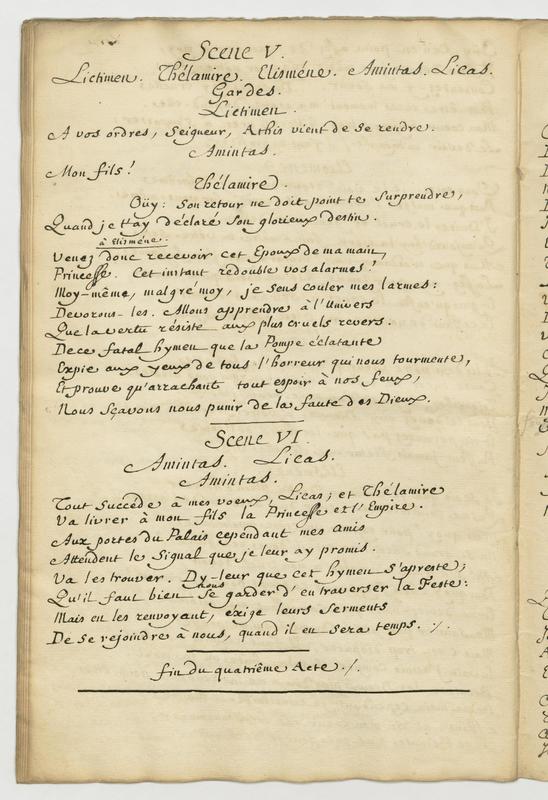 Scene V.
Lictimen. Thélamire. Elisméne. Amintas. Licas.
Gardes.
Lictimen.
A vos ordres, Seigneur, Athis vient de se rendre.
Amintas.
Mon fils!
Thélamire.
Oüy: son retour ne doit point te surprendre,
Quand je t'ay déclaré son glorieux destin.
à Elisméne.
Venez donc recevoir cet Epoux de ma main,
Princesse. Cet instant redouble vos alarmes!
Moy-même, malgré moy, je sens couler mes larmes:
Devorons-les. Allons apprendre à l'Univers
Que la vertu résiste aux plus cruels revers.
De ce fatal hymen que la Pompe éclatante
Expie aux yeux de tous l'horreur qui nous tourmente,
Et prouve qu'arrachant tout espoir à nos feux,
Nous sçavons nous punir de la faute des Dieux.
Scene VI.
Amintas. Licas.
Amintas.
Tout succède à mes voeux, Licas; et Thélamire
Va livrer à mon fils la Princesse et l'Empire.
Aux portes du Palais cependant mes amis
Attendent le Signal que je leur ay promis.
Va les trouver. Dy-leur que cet hymen s'apreste;
nous
Qu'il faut bien se garder d'en traverser la Feste:
Mais en les renvoyant, éxige leurs serments
De se rejoindre à nous, quand il en sera temps. ./.
fin du quatriême Acte ./.